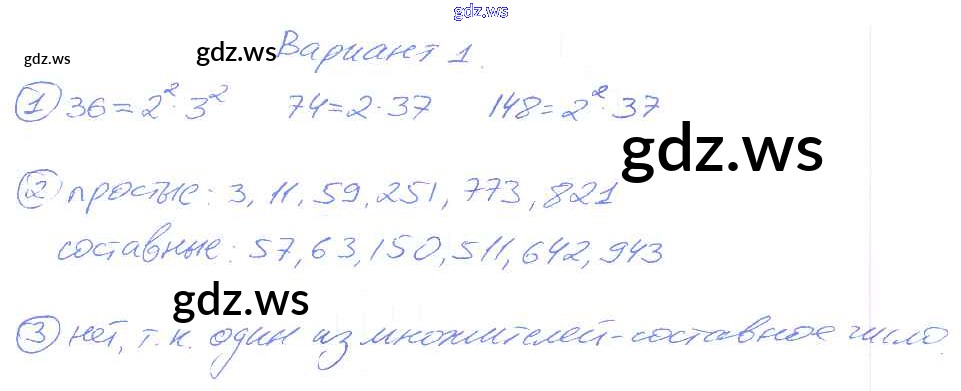 gdz.ws
Вариант 1.
gdz.ws gdz.ws
1 36=2²·3² 74=2·37 148=2²·37
gdz.ws
2 простые: 3, 11, 59, 251, 773, 821
составные: 57, 63, 150, 511, 642, 943
gdz.ws
3 нет, т.к. один из множителей-составное число.